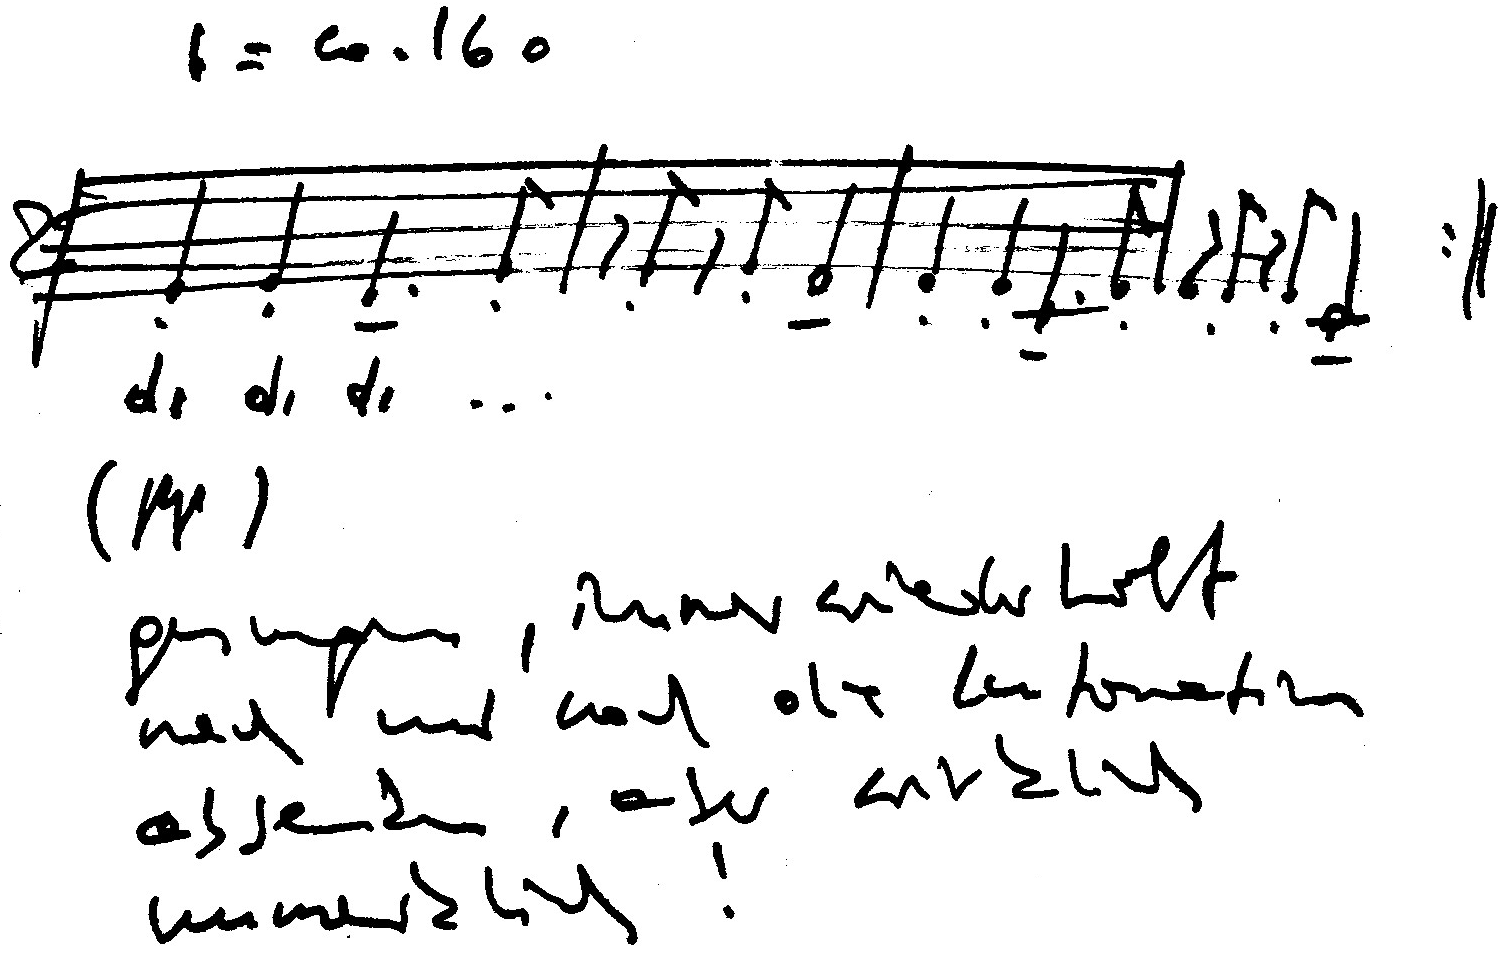 ♩ = ca. 160
di di di ...
(pp)
gesungen, immer wiederholt
nach und nach die Intonation
absenken, aber wirklich
unmerklich!